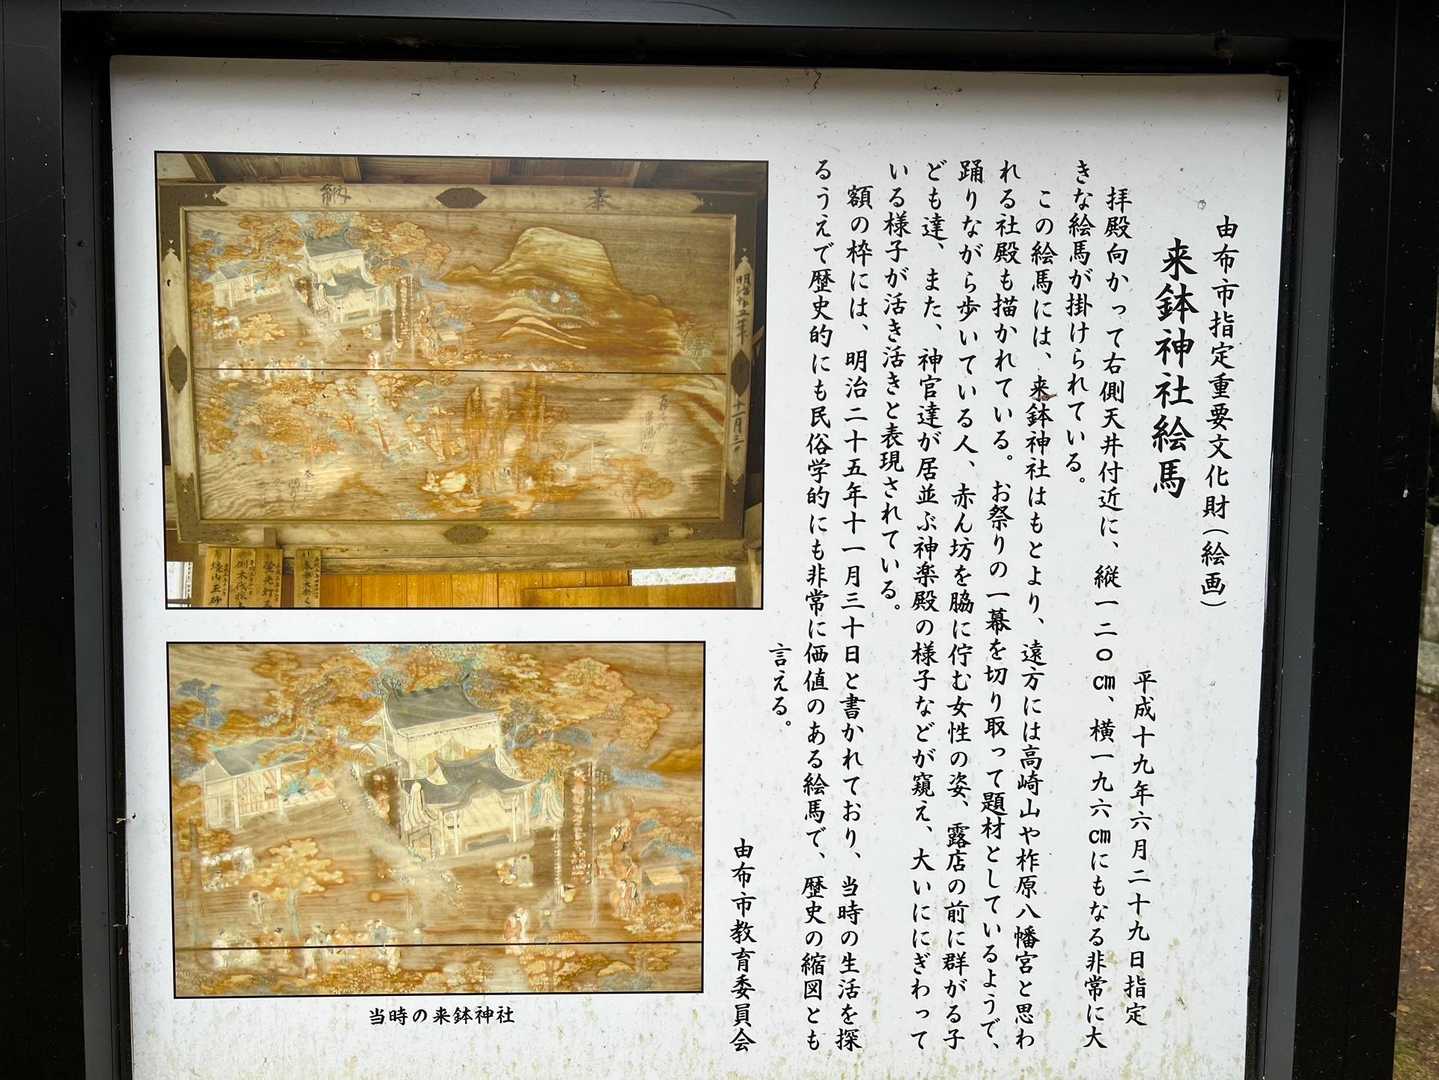 由布市指定重要文化財（絵画）
来鉢神社絵馬
平成十九年六月二十九日指定
拝殿向かって右側天井付近に、縦一二〇㎝、横一九六㎝にもなる非常に大
きな絵馬が掛けられている。
この絵馬には、来鉢神社はもとより、遠方には高崎山や柞原八幡宮と思わ
れる社殿も描かれている。お祭りの一幕を切り取って題材としているようで、
踊りながら歩いている人、赤ん坊を脇に佇む女性の姿、露店の前に群がる子
ども達、また、神官達が居並ぶ神楽殿の様子などが窺え、大いににぎわって
いる様子が活き活きと表現されている。
額の枠には、明治二十五年十一月三十日と書かれており、当時の生活を探
るうえで歴史的にも民俗学的にも非常に価値のある絵馬で、歴史の縮図とも
言える。
由布市教育委員会
奉
納
当時の来鉢神社